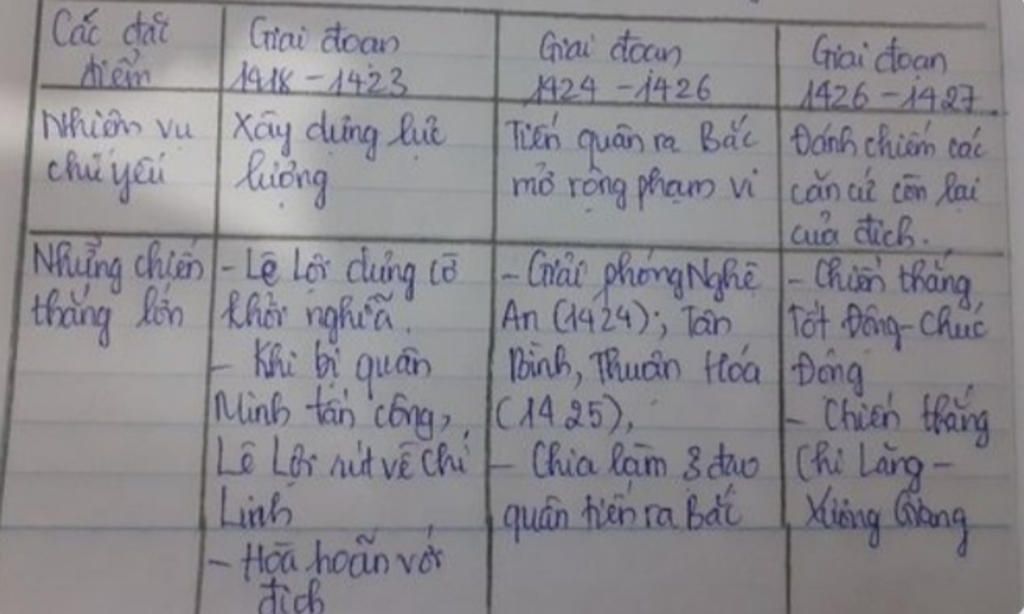 Các đặc
điểm
Giai đoạn
1418 - 1423
Giai đoạn
1424 - 1426
Giai đoạn
1426 - 1427
Nhiệm vụ
chủ yếu
Xây dựng lực
lượng
Tiến quân ra Bắc
mở rộng phạm vi
Đánh chiếm các
căn cứ còn lại
của địch.
Những chiến
thắng lớn
- Lê Lợi dựng cờ
khởi nghĩa.
- Khi bị quân
Minh tấn công,
Lê Lợi rút về Chí
Linh
- Hòa hoãn với
địch
- Giải phóng Nghệ
An (1424); Tân
Bình, Thuận Hóa
(1425),
- Chia làm 3 đạo
quân tiến ra Bắc
- Chiến thắng
Tốt Động - Chúc
Động
- Chiến thắng
Chi Lăng -
Xương Giang